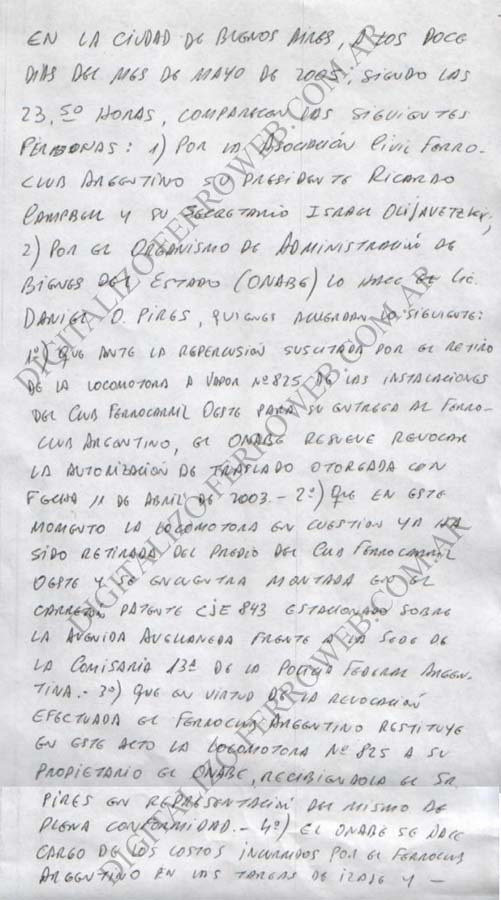 EN LA CIUDAD DE BUENOS AIRES, A LOS DOCE
DIAS DEL MES DE MAYO DE 2005, SIENDO LAS
23,50 HORAS, COMPARECEN LAS SIGUIENTES
PERSONAS: 1) POR LA ASOCIACIÓN CIVIL FERRO-
CLUB ARGENTINO SU PRESIDENTE RICARDO
CAMPBELL Y SU SECRETARIO ISRAEL
2) POR EL ORGANISMO DE ADMINISTRACIÓN DE
BIENES DEL ESTADO (ONABE) LO HACE EL LIC.
DANIEL O. PIRES, QUIENES ACUERDAN LO SIGUIENTE:
1º) QUE ANTE LA REPERCUSIÓN SUSCITADA POR EL RETIRO
DE LA LOCOMOTORA A VAPOR Nº 825 DE LAS INSTALACIONES
DEL CLUB FERROCARRIL OESTE PARA SU ENTREGA AL FERRO-
CLUB ARGENTINO, EL ONABE RESUELVE REVOCAR
LA AUTORIZACIÓN DE TRASLADO OTORGADA CON
FECHA 11 DE ABRIL DE 2003.- 2º) QUE EN ESTE
MOMENTO LA LOCOMOTORA EN CUESTION YA HA
SIDO RETIRADA DEL PREDIO DEL CLUB FERROCARRIL
OESTE Y SE ENCUENTRA MONTADA EN EL
CARRETON PATENTE CJE 843 ESTACIONADO SOBRE
LA AVENIDA AVELLANEDA FRENTE A LA SEDE DE
LA COMISARIA 13ª DE LA POLICIA FEDERAL ARGEN-
TINA.- 3º) QUE EN VIRTUD DE LA REVOCACIÓN
EFECTUADA EL FERROCLUB ARGENTINO RESTITUYE
EN ESTE ACTO LA LOCOMOTORA Nº 825 A SU
PROPIETARIO EL ONABE, RECIBIENDOLA EL SR.
PIRES EN REPRESENTACIÓN DEL MISMO DE
PLENA CONFORMIDAD.- 4º) EL ONABE SE HACE
CARGO DE LOS COSTOS INCURRIDOS POR EL FERROCLUB
ARGENTINO EN LAS TAREAS DE IZAJE Y -
DIGITALIZO.FERROWEB.COM.AR
DIGITALIZO.FERROWEB.COM.AR
DIGITALIZO.FERROWEB.COM.AR